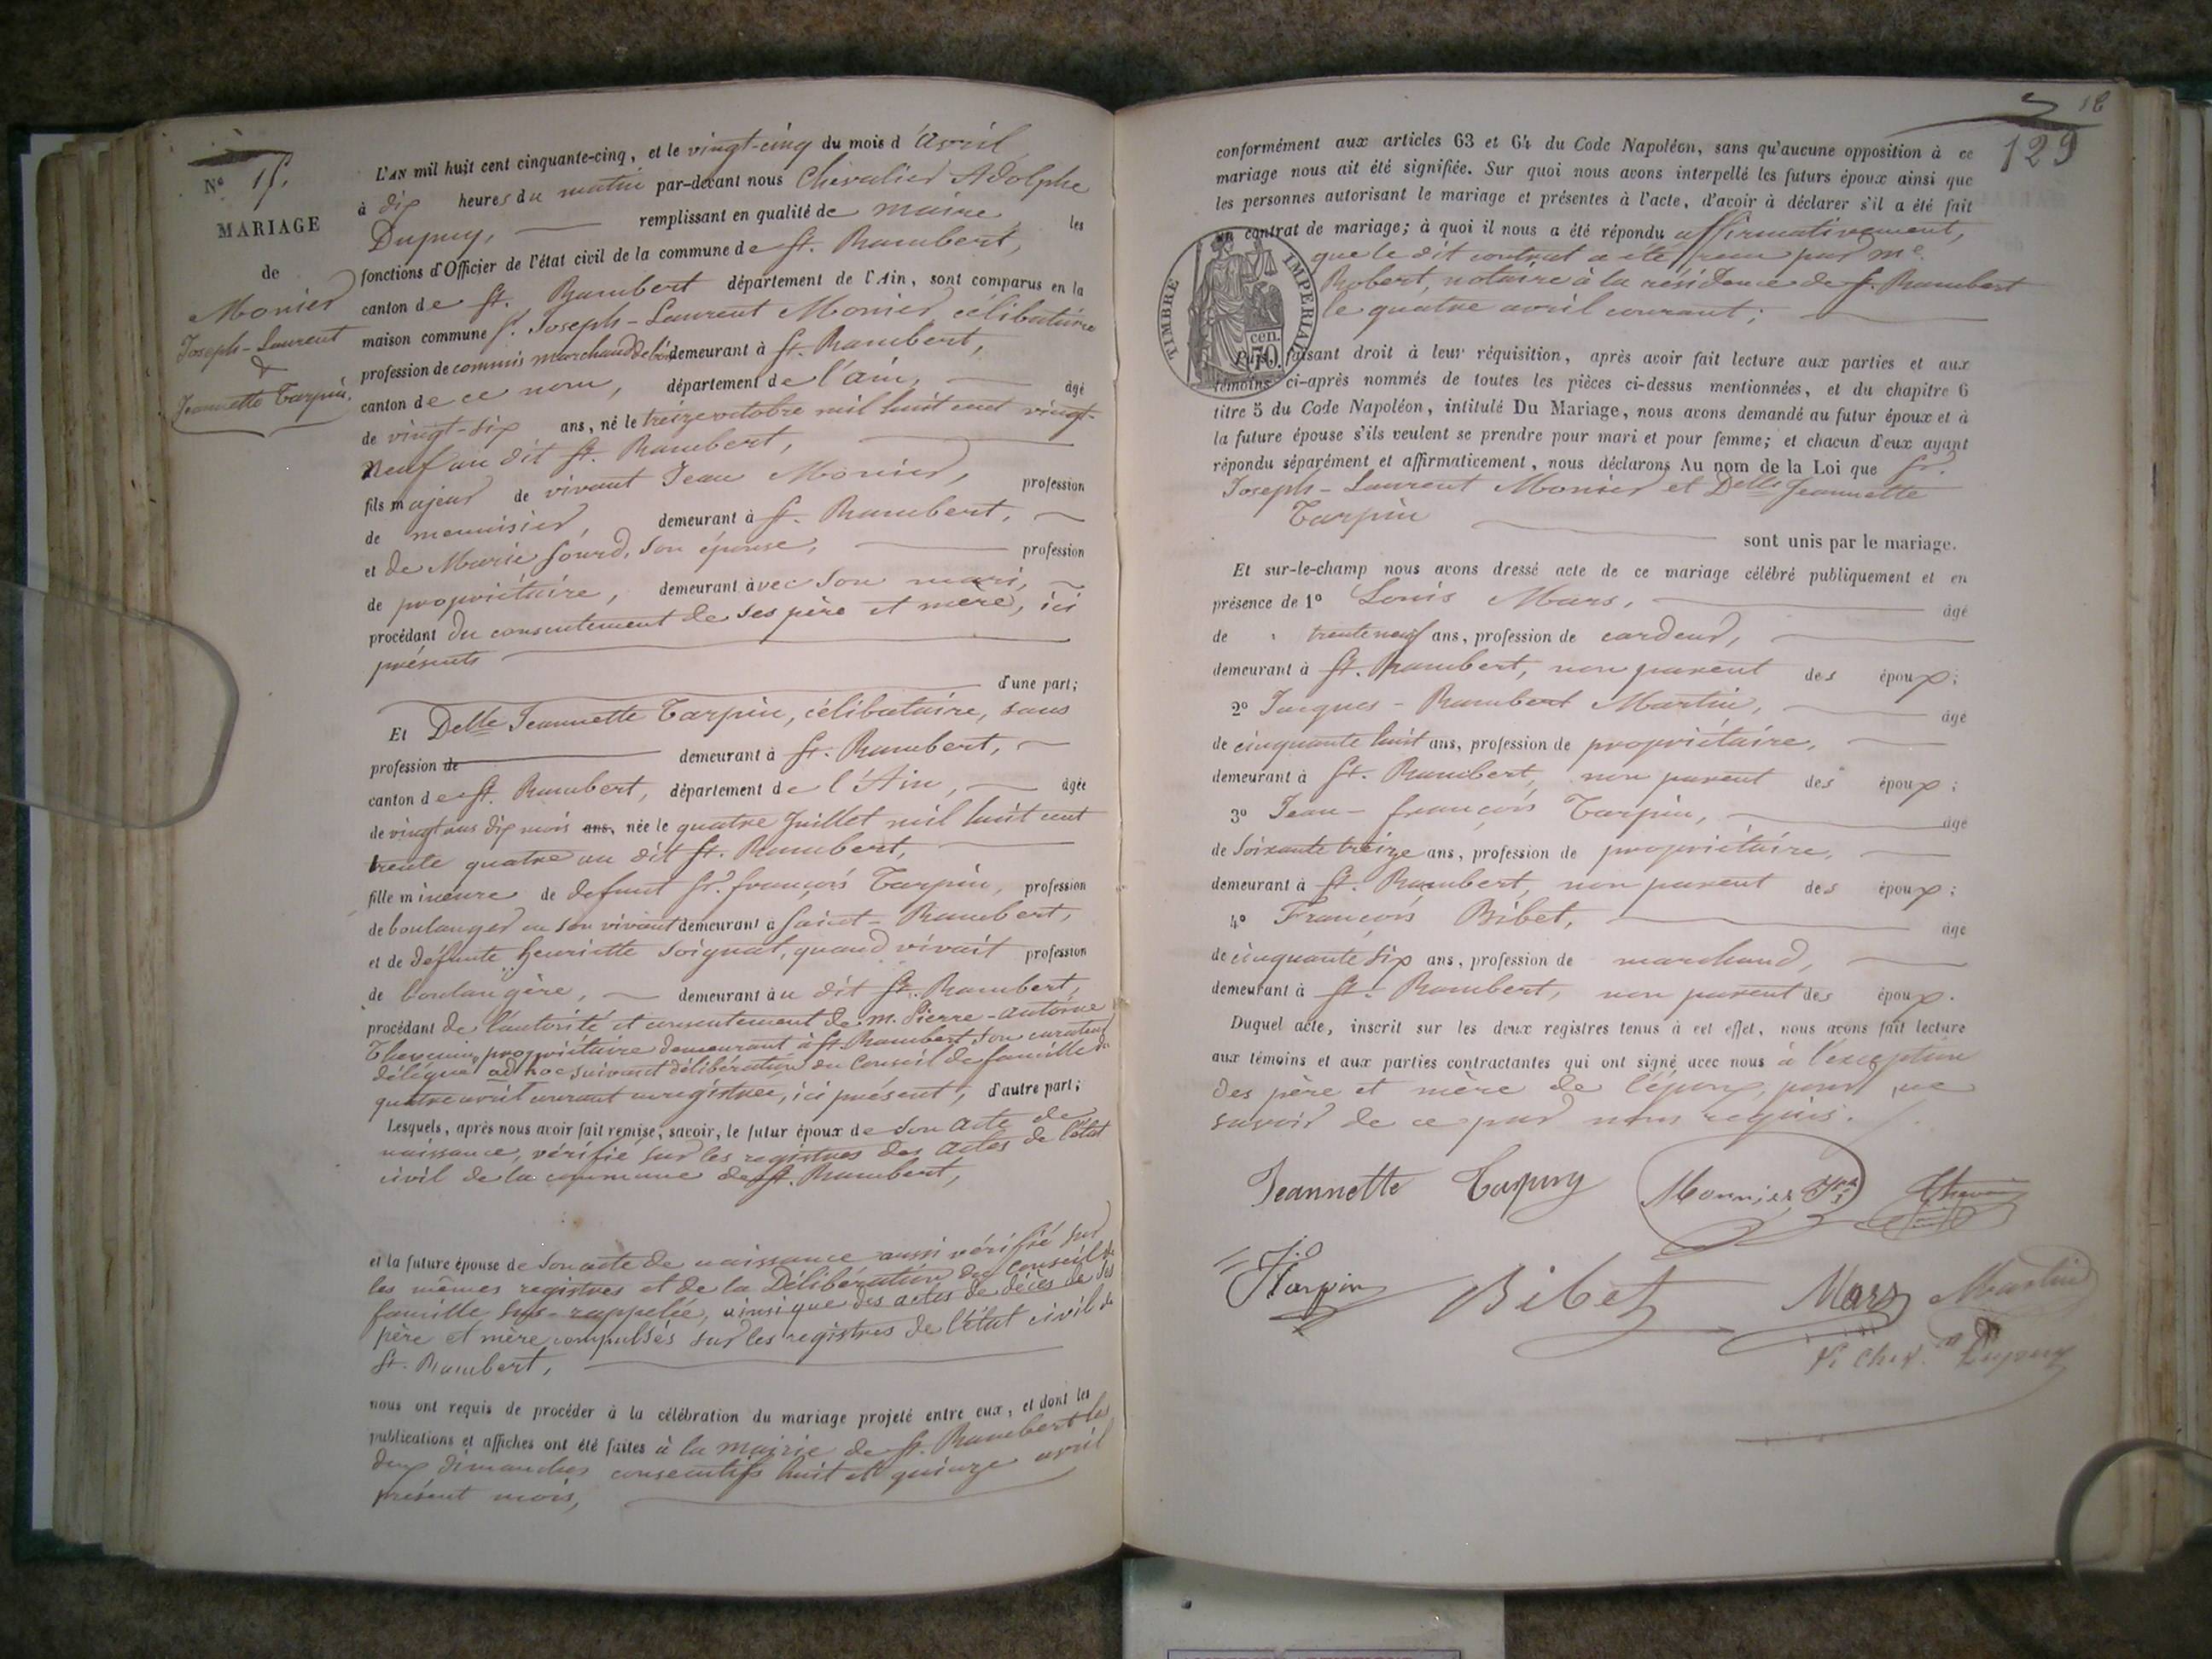 N° 15.
MARIAGE
de
Monier
Joseph-Laurent
&
Jeannette Tarpin.
L'AN mil huit cent cinquante-cinq, et le vingt-cinq du mois d'avril
à dix heures du matin par-devant nous Chevalier Adolphe
Dupuy, remplissant en qualité de maire les
fonctions d'Officier de l'état civil de la commune de St. Rambert,
canton de St. Rambert département de l'Ain, sont comparus en la
maison commune Sr. Joseph-Laurent Monier, célibataire
profession de commis marchand de demeurant à St. Rambert,
canton de ce nom, département de l'ain, âgé
de vingt-six ans, né le treize octobre mil huit cent vingt-
neuf au dit St. Rambert,
fils majeur de vivant Jean Monier, profession
de menuisier, demeurant à St. Rambert,
et de Marie Sourd, son épouse, profession
de propriétaire, demeurant avec son mari,
procédant du consentement de ses père et mère, ici
présents
d'une part;
Et Delle Jeannette Tarpin, célibataire, sans
profession de demeurant à St. Rambert,
canton de St. Rambert, département de l'Ain, âgée
de vingt ans dix mois ans, née le quatre Juillet mil huit cent
trente quatre au dit St. Rambert,
fille mineure de défunt Sr. françois Tarpin, profession
de boulanger en son vivant demeurant à Saint-Rambert,
et de défunte henriette Soignat, quand vivait profession
de boulangère, demeurant au dit St. Rambert,
procédant de l'autorité et consentement de m. Pierre-antoine
Thevenin, propriétaire demeurant à St. Rambert son curateur
délégué ad hoc suivant délibération du Conseil de famille du
quatre avril courant enregistrée, ici présent, d'autre part;
Lesquels, après nous avoir fait remise, savoir, le futur époux de son acte de
naissance, vérifié sur les registres des actes de l'état
civil de la commune de St. Rambert,
et la future épouse de son acte de naissance aussi vérifié sur
les mêmes registres et de la Délibération du Conseil de
famille sus-rappelée, ainsi que des actes de décès de ses
père et mère compulsés sur les registres de l'état civil de
St. Rambert,
nous ont requis de procéder à la célébration du mariage projeté entre eux, et dont les
publications et affiches ont été faites à la mairie de St. Rambert les
deux dimanches consecutifs huit et quinze avril
présent mois,
129
conformément aux articles 63 et 64 du Code Napoléon, sans qu'aucune opposition à ce
mariage nous ait été signifiée. Sur quoi nous avons interpellé les futurs époux ainsi que
les personnes autorisant le mariage et présentes à l'acte, d'avoir à déclarer s'il a été fait
un contrat de mariage; à quoi il nous a été répondu affirmativement,
que le dit contrat a été reçu par Me.
Robert, notaire à la résidence de St. Rambert
le quatre avril courant;
TIMBRE IMPERIAL
70 cen.
faisant droit à leur réquisition, après avoir fait lecture aux parties et aux
témoins ci-après nommés de toutes les pièces ci-dessus mentionnées, et du chapitre 6
titre 5 du Code Napoléon, intitulé Du Mariage, nous avons demandé au futur époux et à
la future épouse s'ils veulent se prendre pour mari et pour femme; et chacun d'eux ayant
répondu séparément et affirmativement, nous déclarons Au nom de la Loi que Sr.
Joseph-Laurent Monier et Delle Jeannette
Tarpin
sont unis par le mariage.
Et sur-le-champ nous avons dressé acte de ce mariage célébré publiquement et en
présence de 1° Louis Mars, âgé
de trente neuf ans, profession de cardeur,
demeurant à St. Rambert, non parent des époux;
2° Jacques-Rambert Martin, âgé
de cinquante huit ans, profession de propriétaire,
demeurant à St. Rambert, non parent des époux;
3° Jean-françois Tarpin, âgé
de soixante treize ans, profession de propriétaire,
demeurant à St. Rambert, non parent des époux;
4° François Bibet, âgé
de cinquante six ans, profession de marchand,
demeurant à St. Rambert, non parent des époux.
Duquel acte, inscrit sur les deux registres tenus à cet effet, nous avons fait lecture
aux témoins et aux parties contractantes qui ont signé avec nous à l'exception
des père et mère de l'époux, pour ne
savoir de ce par nous requis.
Jeannette Tarpin Monnier
Tarpin Bibet Mars Martin
Chev. Dupuy